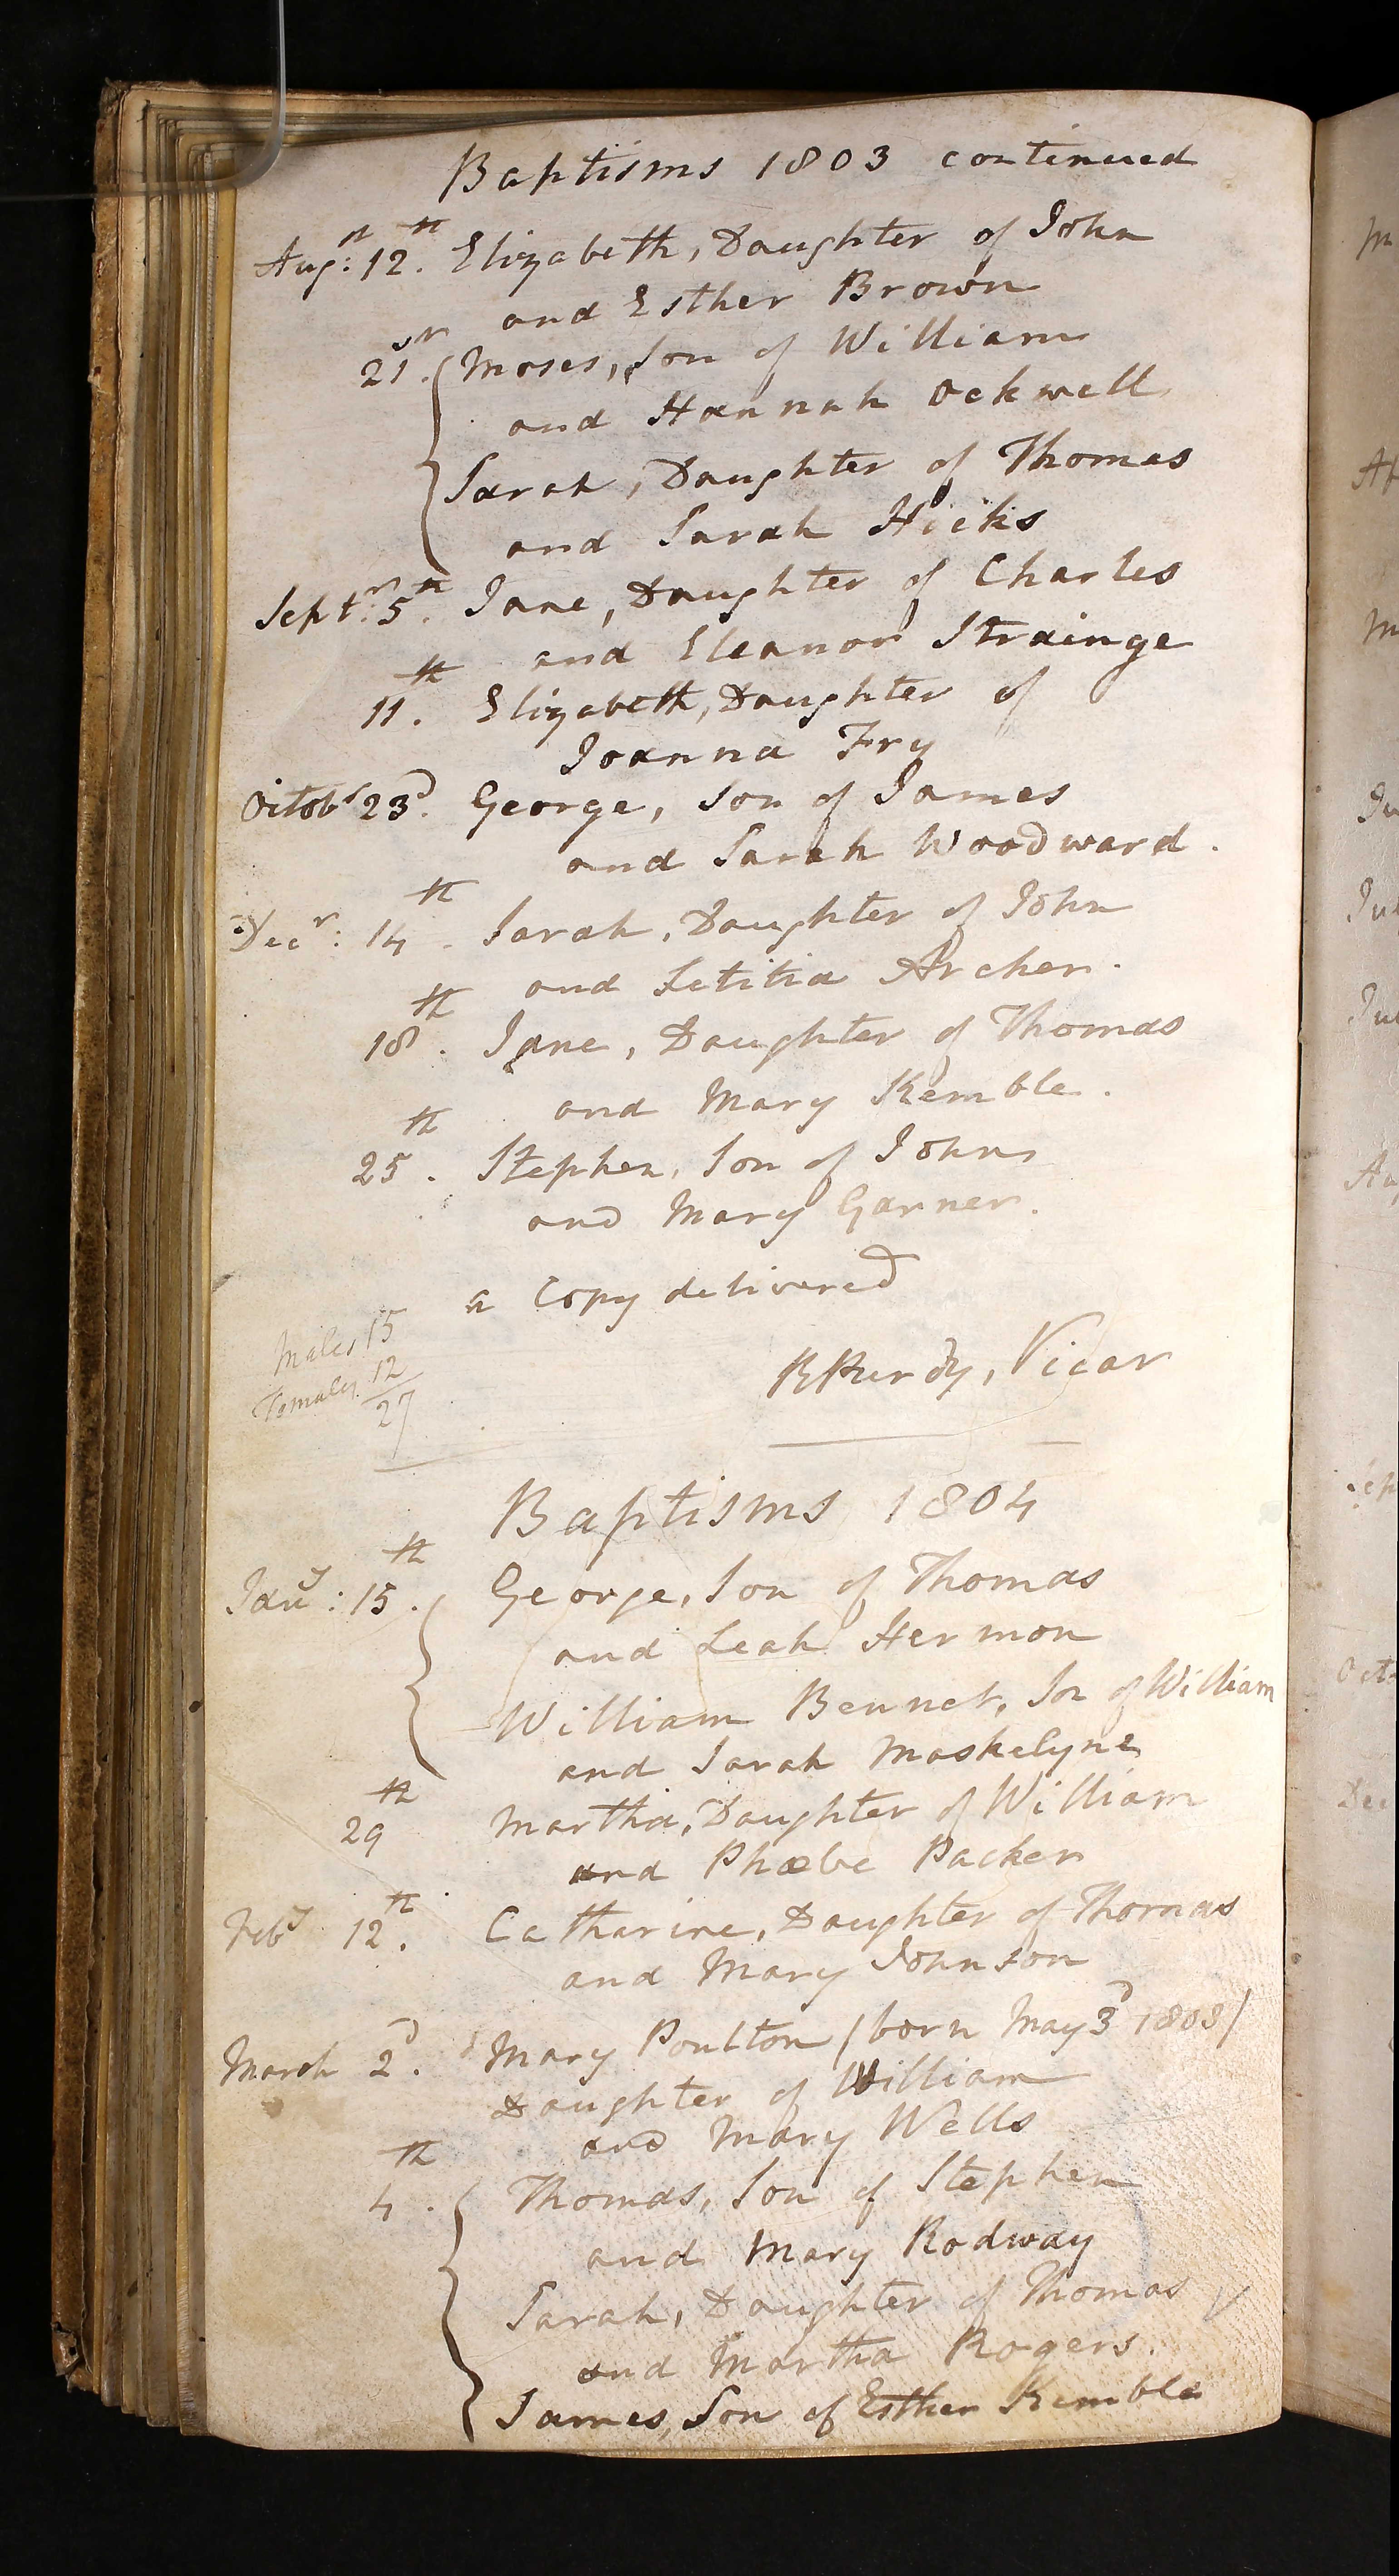 Baptisms 1803 continued
Augst: 12th. Elizabeth, Daughter of John
and Esther Brown
21st. Moses, Son of William
and Hannah Ockwell
Sarah, Daughter of Thomas
and Sarah Hicks
Septr: 5th. Jane, Daughter of Charles
and Eleanor Strainge
11th. Elizabeth, Daughter of
Joanna Fry
Octobr 23d. George, Son of James
and Sarah Woodward.
Decr: 14th. Sarah, Daughter of John
and Letitia Archer.
18th. Jane, Daughter of Thomas
and Mary Kemble.
25th. Stephen, Son of John
and Mary Garner.
a Copy delivered
Males 15
Females 12
27
R Purdy, Vicar
Baptisms 1804
Jany: 15th. George, Son of Thomas
and Leah Hermon
William Bennet, Son of William
and Sarah Maskelyne
29th Martha, Daughter of William
and Phœbe Packer
Feby 12th. Catharine, Daughter of Thomas
and Mary Johnson
March 2d. Mary Poulton (born May 3d 1803)
Daughter of William
and Mary Wells
4th. Thomas, Son of Stephen
and Mary Rodway
Sarah, Daughter of Thomas
and Martha Rogers.
James, Son of Esther Kemble